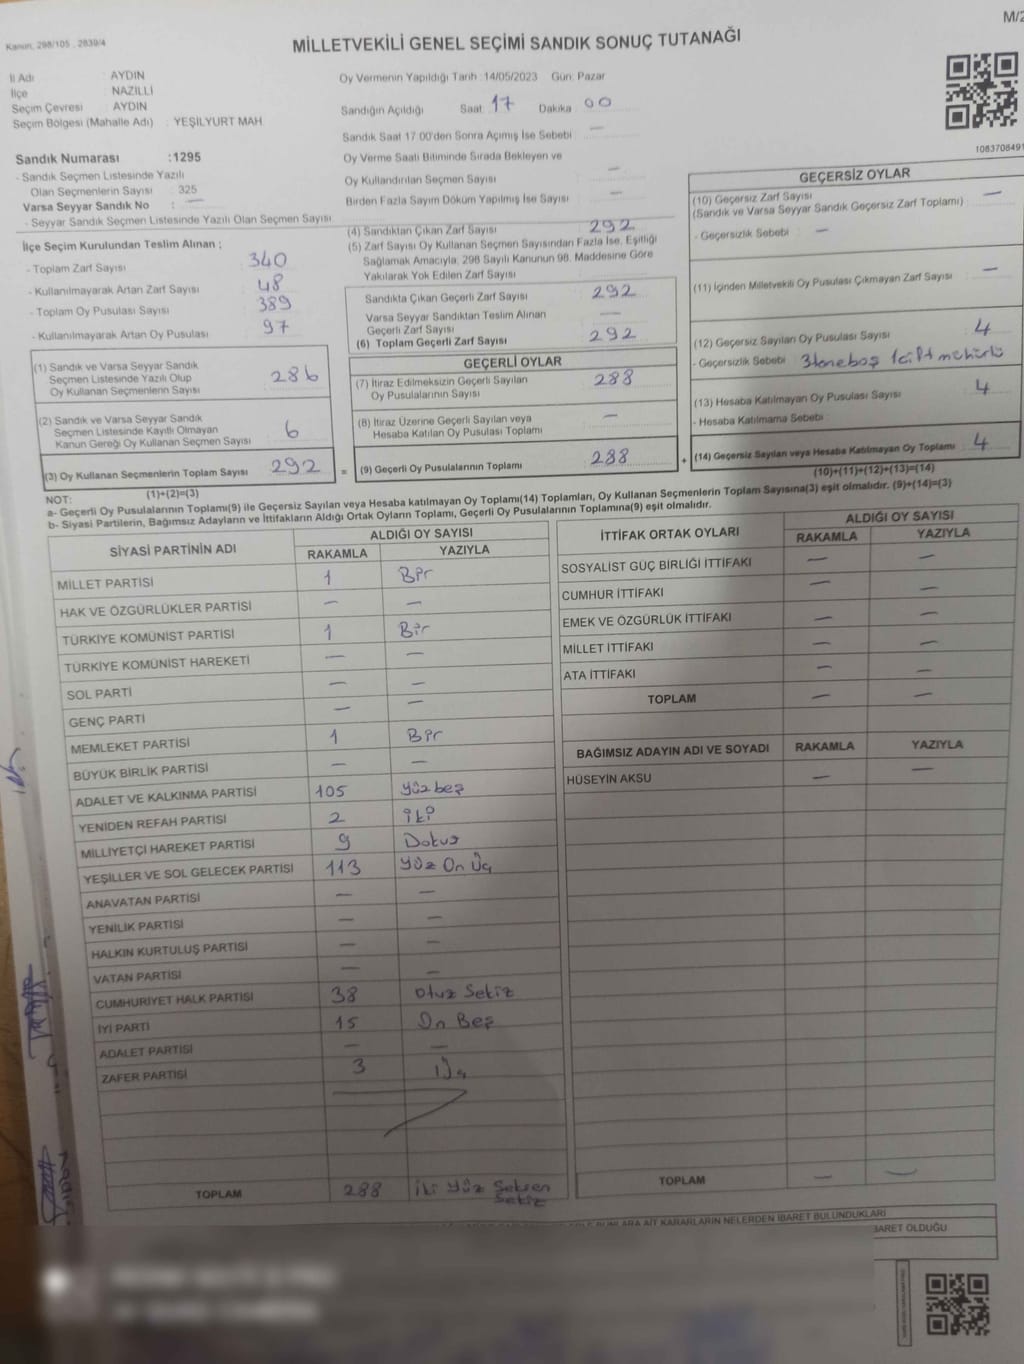 M/2
Kanun, 298/105 , 2839/4
MİLLETVEKİLİ GENEL SEÇİMİ SANDIK SONUÇ TUTANAĞI
İl Adı : AYDIN
İlçe : NAZİLLİ
Seçim Çevresi : AYDIN
Seçim Bölgesi (Mahalle Adı) : YEŞİLYURT MAH.
Oy Vermenin Yapıldığı Tarih :14/05/2023 Gün: Pazar
Sandığın Açıldığı Saat : 17 Dakika : 00
Sandık Saat 17.00'den Sonra Açımış İse Sebebi : —
Oy Verme Saati Bitiminde Sırada Bekleyen ve
Oy Kullandırılan Seçmen Sayısı —
Birden Fazla Sayım Döküm Yapılmış İse Sayısı —
1083708491
Sandık Numarası :1295
- Sandık Seçmen Listesinde Yazılı
Olan Seçmenlerin Sayısı : 325
Varsa Seyyar Sandık No : —
- Seyyar Sandık Seçmen Listesinde Yazılı Olan Seçmen Sayısı
İlçe Seçim Kurulundan Teslim Alınan ;
- Toplam Zarf Sayısı 340
- Kullanılmayarak Artan Zarf Sayısı 48
- Toplam Oy Pusulası Sayısı 389
- Kullanılmayarak Artan Oy Pusulası 97
(1) Sandık ve Varsa Seyyar Sandık
Seçmen Listesinde Yazılı Olup
Oy Kullanan Seçmenlerin Sayısı 286
(2) Sandık ve Varsa Seyyar Sandık
Seçmen Listesinde Kayıtlı Olmayan
Kanun Gereği Oy Kullanan Seçmen Sayısı 6
(3) Oy Kullanan Seçmenlerin Toplam Sayısı 292
(1)+(2)=(3)
(4) Sandıktan Çıkan Zarf Sayısı 292
(5) Zarf Sayısı Oy Kullanan Seçmen Sayısından Fazla İse, Eşitliği
Sağlamak Amacıyla, 298 Sayılı Kanunun 98. Maddesine Göre
Yakılarak Yok Edilen Zarf Sayısı —
Sandıkta Çıkan Geçerli Zarf Sayısı 292
Varsa Seyyar Sandıktan Teslim Alınan
Geçerli Zarf Sayısı —
(6) Toplam Geçerli Zarf Sayısı 292
GEÇERLİ OYLAR
(7) İtiraz Edilmeksizin Geçerli Sayılan
Oy Pusulalarının Sayısı 288
(8) İtiraz Üzerine Geçerli Sayılan veya
Hesaba Katılan Oy Pusulası Toplamı —
= (9) Geçerli Oy Pusulalarının Toplamı 288
GEÇERSİZ OYLAR
(10) Geçersiz Zarf Sayısı —
(Sandık ve Varsa Seyyar Sandık Geçersiz Zarf Toplamı)
- Geçersizlik Sebebi : —
(11) İçinden Milletvekili Oy Pusulası Çıkmayan Zarf Sayısı —
(12) Geçersiz Sayılan Oy Pusulası Sayısı 4
- Geçersizlik Sebebi 3tane boş 1 çift mühürlü
(13) Hesaba Katılmayan Oy Pusulası Sayısı 4
- Hesaba Katılmama Sebebi :
+ (14) Geçersiz Sayılan veya Hesaba Katılmayan Oy Toplamı 4
(10)+(11)+(12)+(13)=(14)
NOT:
a- Geçerli Oy Pusulalarının Toplamı(9) ile Geçersiz Sayılan veya Hesaba katılmayan Oy Toplamı(14) Toplamları, Oy Kullanan Seçmenlerin Toplam Sayısına(3) eşit olmalıdır. (9)+(14)=(3)
b- Siyasi Partilerin, Bağımsız Adayların ve İttifakların Aldığı Ortak Oyların Toplamı, Geçerli Oy Pusulalarının Toplamına(9) eşit olmalıdır.
SİYASİ PARTİNİN ADI ALDIĞI OY SAYISI
RAKAMLA YAZIYLA
MİLLET PARTİSİ 1 Bir
HAK VE ÖZGÜRLÜKLER PARTİSİ — —
TÜRKİYE KOMÜNİST PARTİSİ 1 Bir
TÜRKİYE KOMÜNİST HAREKETİ — —
SOL PARTİ — —
GENÇ PARTİ — —
MEMLEKET PARTİSİ 1 Bir
BÜYÜK BİRLİK PARTİSİ — —
ADALET VE KALKINMA PARTİSİ 105 yüzbeş
YENİDEN REFAH PARTİSİ 2 iki
MİLLİYETÇİ HAREKET PARTİSİ 9 Dokuz
YEŞİLLER VE SOL GELECEK PARTİSİ 113 Yüz On Üç
ANAVATAN PARTİSİ — —
YENİLİK PARTİSİ — —
HALKIN KURTULUŞ PARTİSİ — —
VATAN PARTİSİ — —
CUMHURİYET HALK PARTİSİ 38 Otuz Sekiz
İYİ PARTİ 15 On Beş
ADALET PARTİSİ — —
ZAFER PARTİSİ 3 Üç
TOPLAM 288 İki Yüz Seksen
Sekiz
İTTİFAK ORTAK OYLARI ALDIĞI OY SAYISI
RAKAMLA YAZIYLA
SOSYALİST GÜÇ BİRLİĞİ İTTİFAKI — —
CUMHUR İTTİFAKI — —
EMEK VE ÖZGÜRLÜK İTTİFAKI — —
MİLLET İTTİFAKI — —
ATA İTTİFAKI — —
TOPLAM — —
BAĞIMSIZ ADAYIN ADI VE SOYADI RAKAMLA YAZIYLA
HÜSEYİN AKSU — —
TOPLAM — —
BUNLARA AİT KARARLARIN NELERDEN İBARET BULUNDUKLARI
İBARET OLDUĞU